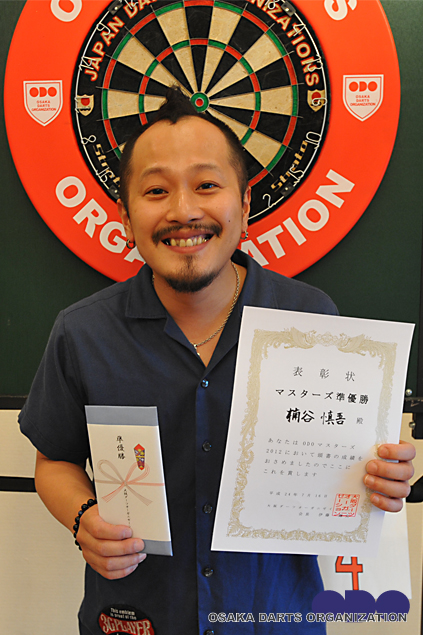 OSAKA DARTS
ORGANIZATION
JAPAN DARTS ORGANIZATIONS
ODO
OSAKA
DARTS
ORGANIZATION
ODO
OSAKA
DARTS
ORGANIZATION
表彰状
マスターズ準優勝
楠谷 慎吾 殿
あなたはODOマスターズ
2012において頭書の成績を
おさめましたのでここに
これを賞します
準優勝
4
OSAKA DARTS ORGANIZATION